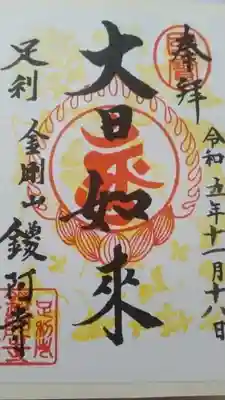 奉拝
令和五年十一月十八日
大日如來
足利
金剛山
鑁阿寺